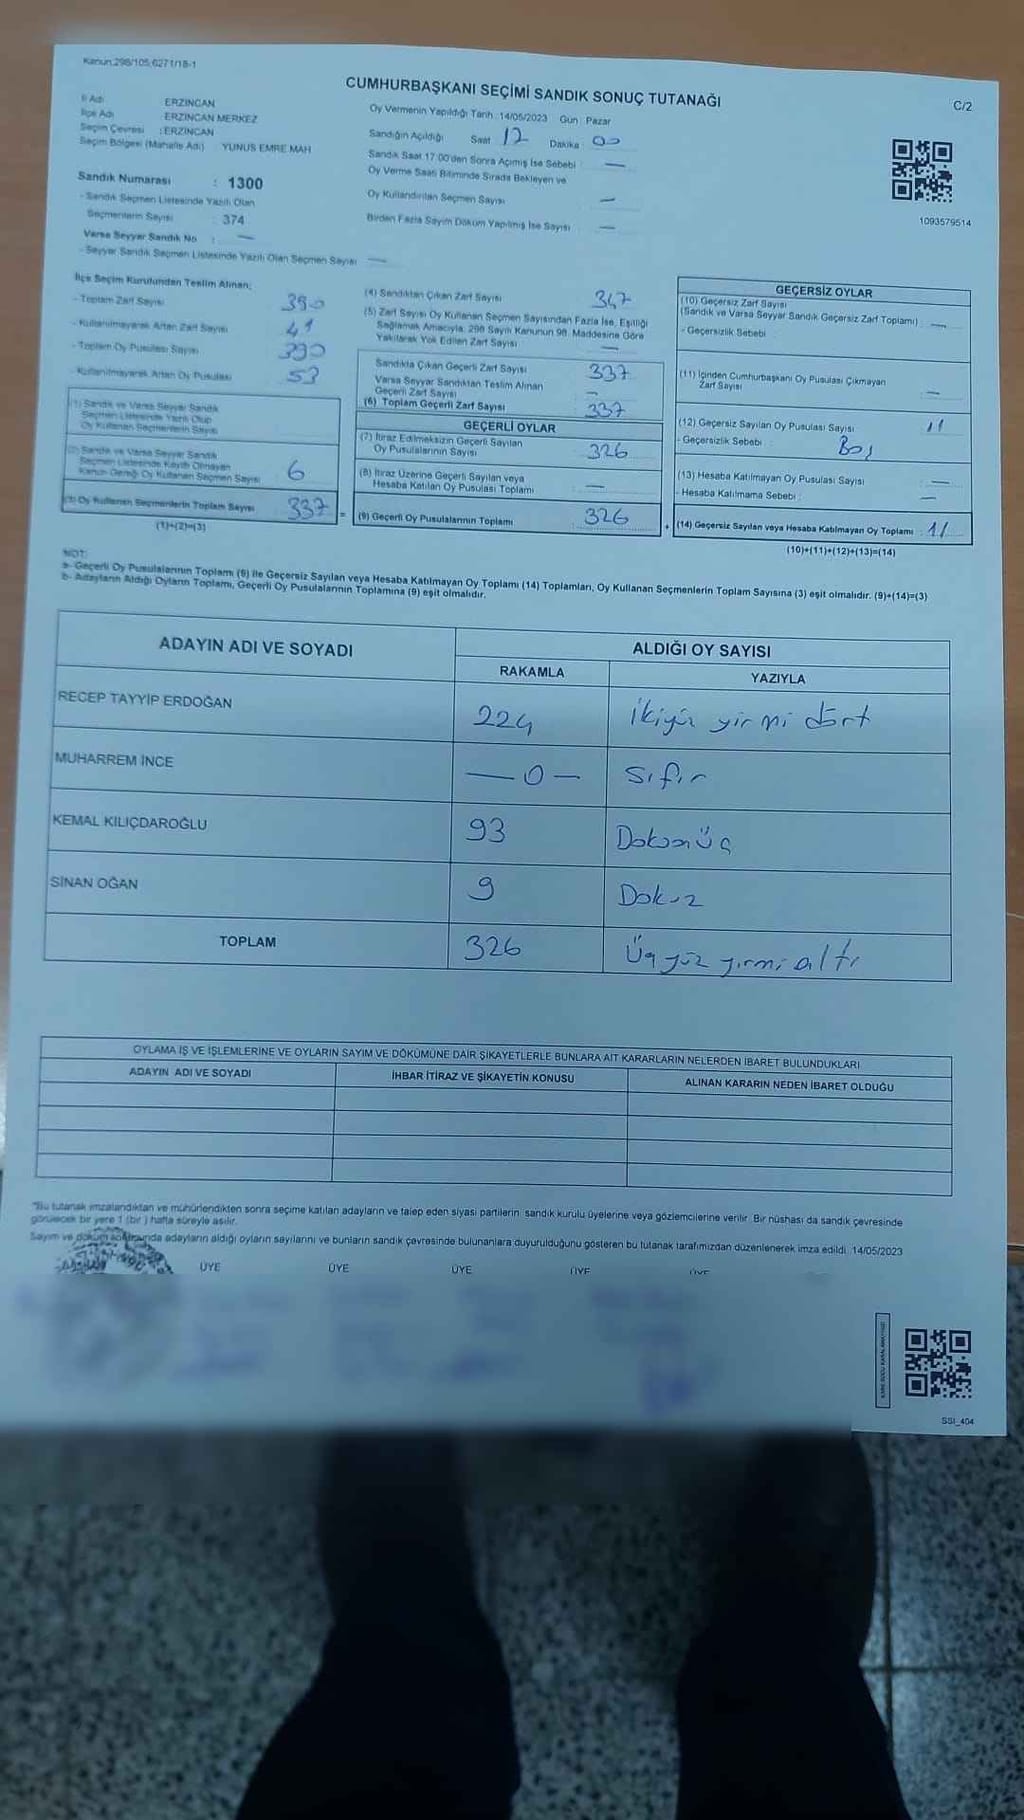 Kanun:298/105,6271/18-1
CUMHURBAŞKANI SEÇİMİ SANDIK SONUÇ TUTANAĞI
C/2
İl Adı : ERZİNCAN
İlçe Adı : ERZİNCAN MERKEZ
Seçim Çevresi : ERZİNCAN
Seçim Bölgesi (Mahalle Adı) : YUNUS EMRE MAH
Sandık Numarası : 1300
- Sandık Seçmen Listesinde Yazılı Olan
Seçmenlerin Sayısı : 374
Varsa Seyyar Sandık No : —
- Seyyar Sandık Seçmen Listesinde Yazılı Olan Seçmen Sayısı : —
Oy Vermenin Yapıldığı Tarih : 14/05/2023 Gün : Pazar
Sandığın Açıldığı Saat : 17 Dakika : 00
Sandık Saat 17:00'den Sonra Açımış İse Sebebi : —
Oy Verme Saati Bitiminde Sırada Bekleyen ve
Oy Kullandırılan Seçmen Sayısı : —
Birden Fazla Sayım Döküm Yapılmış İse Sayısı : —
1093579514
İlçe Seçim Kurulundan Teslim Alınan;
- Toplam Zarf Sayısı : 390
- Kullanılmayarak Artan Zarf Sayısı : 41
- Toplam Oy Pusulası Sayısı : 390
- Kullanılmayarak Artan Oy Pusulası : 53
(1) Sandık ve Varsa Seyyar Sandık
Seçmen Listesinde Yazılı Olup
Oy Kullanan Seçmenlerin Sayısı
(2) Sandık ve Varsa Seyyar Sandık
Seçmen Listesinde Kayıtlı Olmayan
Kanun Gereği Oy Kullanan Seçmen Sayısı : 6
(3) Oy Kullanan Seçmenlerin Toplam Sayısı : 337
(1)+(2)=(3)
(4) Sandıktan Çıkan Zarf Sayısı : 347
(5) Zarf Sayısı Oy Kullanan Seçmen Sayısından Fazla İse, Eşitliği
Sağlamak Amacıyla, 298 Sayılı Kanunun 98. Maddesine Göre
Yakılarak Yok Edilen Zarf Sayısı : —
Sandıkta Çıkan Geçerli Zarf Sayısı : 337
Varsa Seyyar Sandıktan Teslim Alınan
Geçerli Zarf Sayısı : —
(6) Toplam Geçerli Zarf Sayısı : 337
GEÇERLİ OYLAR
(7) İtiraz Edilmeksizin Geçerli Sayılan
Oy Pusulalarının Sayısı : 326
(8) İtiraz Üzerine Geçerli Sayılan veya
Hesaba Katılan Oy Pusulası Toplamı : —
(9) Geçerli Oy Pusulalarının Toplamı : 326
GEÇERSİZ OYLAR
(10) Geçersiz Zarf Sayısı
(Sandık ve Varsa Seyyar Sandık Geçersiz Zarf Toplamı) : —
- Geçersizlik Sebebi :
(11) İçinden Cumhurbaşkanı Oy Pusulası Çıkmayan
Zarf Sayısı : —
(12) Geçersiz Sayılan Oy Pusulası Sayısı : 11
- Geçersizlik Sebebi : Boş
(13) Hesaba Katılmayan Oy Pusulası Sayısı : —
- Hesaba Katılmama Sebebi : —
(14) Geçersiz Sayılan veya Hesaba Katılmayan Oy Toplamı : 11
(10)+(11)+(12)+(13)=(14)
NOT:
a- Geçerli Oy Pusulalarının Toplamı (9) ile Geçersiz Sayılan veya Hesaba Katılmayan Oy Toplamı (14) Toplamları, Oy Kullanan Seçmenlerin Toplam Sayısına (3) eşit olmalıdır. (9)+(14)=(3)
b- Adayların Aldığı Oyların Toplamı, Geçerli Oy Pusulalarının Toplamına (9) eşit olmalıdır.
ADAYIN ADI VE SOYADI ALDIĞI OY SAYISI
RAKAMLA YAZIYLA
RECEP TAYYİP ERDOĞAN 224 İkiyüz yirmi dört
MUHARREM İNCE — 0 — Sıfır
KEMAL KILIÇDAROĞLU 93 Doksanüç
SİNAN OĞAN 9 Dokuz
TOPLAM 326 Üçyüz yirmi altı
OYLAMA İŞ VE İŞLEMLERİNE VE OYLARIN SAYIM VE DÖKÜMÜNE DAİR ŞİKAYETLERLE BUNLARA AİT KARARLARIN NELERDEN İBARET BULUNDUKLARI
ADAYIN ADI VE SOYADI İHBAR İTİRAZ VE ŞİKAYETİN KONUSU ALINAN KARARIN NEDEN İBARET OLDUĞU
"Bu tutanak imzalandıktan ve mühürlendikten sonra seçime katılan adayların ve talep eden siyasi partilerin, sandık kurulu üyelerine veya gözlemcilerine verilir. Bir nüshası da sandık çevresinde
görülecek bir yere 1 (bir ) hafta süreyle asılır.
Sayım ve döküm sonucunda adayların aldığı oyların sayılarını ve bunların sandık çevresinde bulunanlara duyurulduğunu gösteren bu tutanak tarafımızdan düzenlenerek imza edildi. 14/05/2023
ÜYE ÜYE ÜYE ÜYE ÜYE
SSI_404